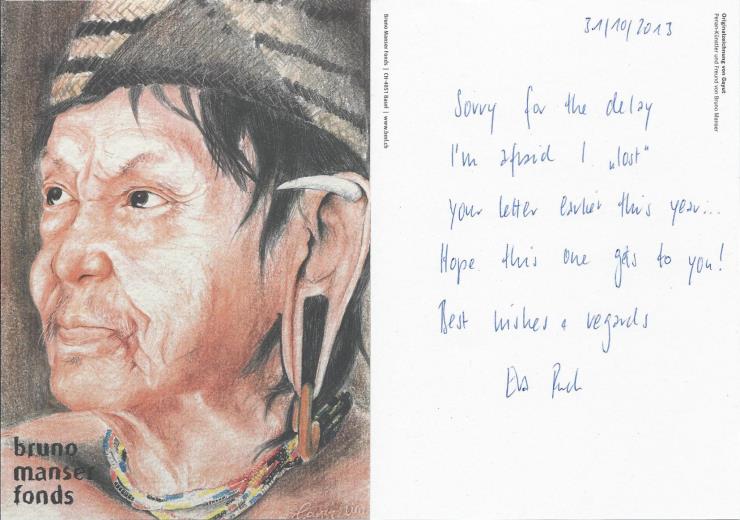 bruno
manser
fonds
Bruno Manser Fonds | CH-4051 Basel | www.bmf.ch
Originalzeichnung von Gayut
Penan-Künstler und Freund von Bruno Manser
31/10/2013
Sorry for the delay
I'm afraid I „lost"
your letter earlier this year...
Hope this one gets to you!
Best wishes & regards